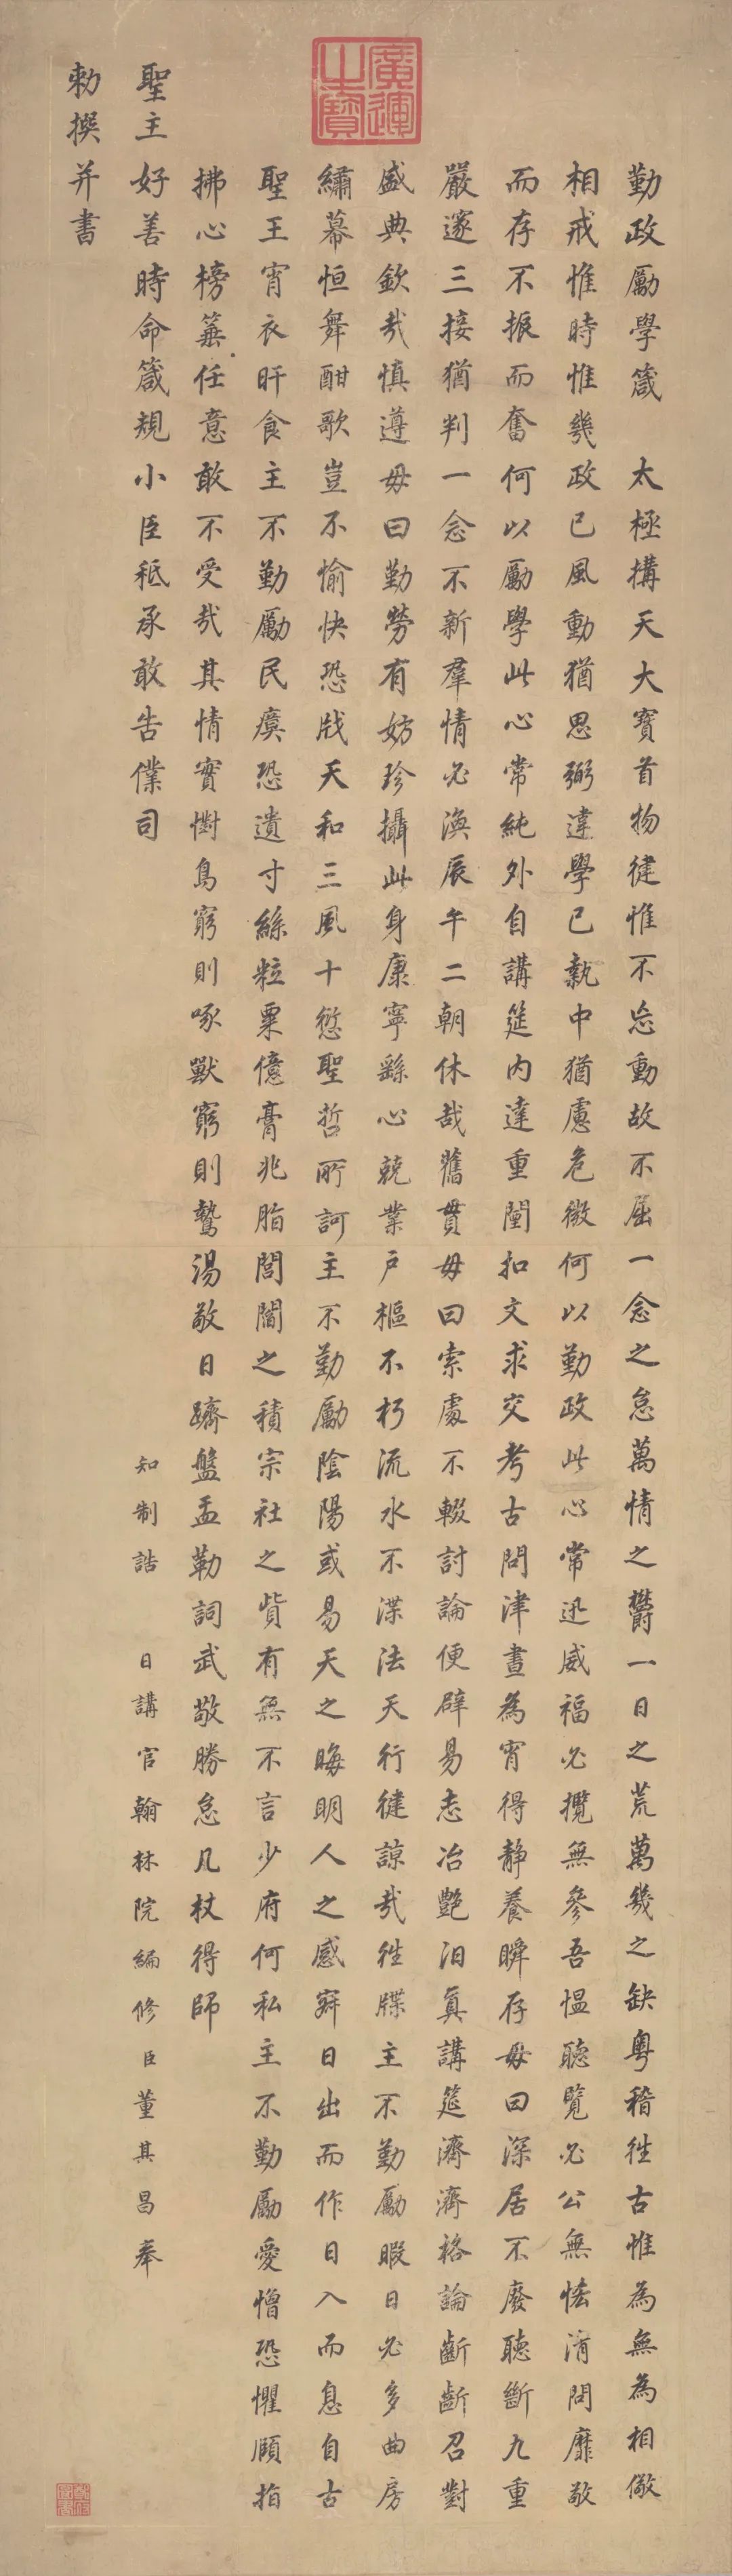 廣運之寶
勤政勵學箴 太極搆天大寶首物健惟不忘動故不屈一念之怠萬情之欝一日之荒萬幾之缺粵稽徃古惟為無為相儆
相戒惟時惟幾政已風動猶思弼違學已執中猶慮危微何以勤政此心常迅威福必攬無參吾慍聽覽必公無恡清問靡敢
而存不振而奮何以勵學此心常純外自講筵內達重闉扣文求交考古問津晝為宵得靜養瞬存毋曰深居不廢聽斷九重
嚴邃三接猶判一念不新羣情必渙辰午二朝休哉舊貫毋曰索處不輟討論便辟易志冶艷汨真講筵濟濟格論斷斷召對
盛典欽哉慎遵毋曰勤勞有妨珍攝此身康寧繇心兢業戶樞不朽流水不渫法天行健諒哉徃牒主不勤勵暇日必多曲房
繡幕恒舞酣歌豈不愉快恐戕天和三風十愆聖哲所訶主不勤勵陰陽或易天之晦明人之感辟日出而作日入而息自古
聖王宵衣旰食主不勤勵民瘼恐遺寸絲粒粟億膏兆脂閭閻之積宗社之貲有無不言少府何私主不勤勵愛憎恐懼頤指
拂心榜箠任意敢不受哉其情實懟鳥窮則啄獸窮則鷙湯敬日躋盤盂勒詞武敬勝怠几杖得師
聖主好善時命箴規小臣秪承敢告僕司 知制誥 日講官翰林院編修臣董其昌奉
勅撰并書